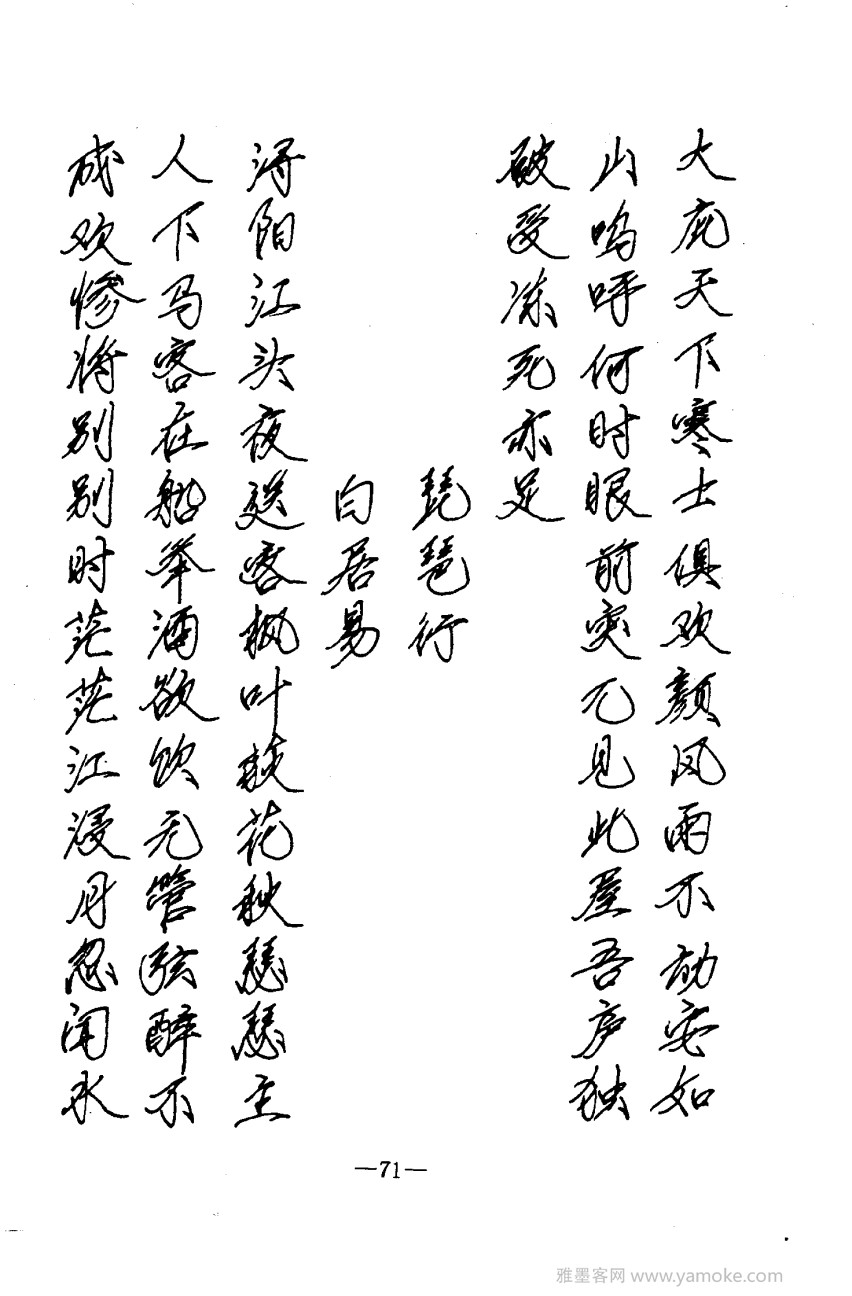 大庇天下寒士俱欢颜风雨不动安如
山呜呼何时眼前突兀见此屋吾庐独
破受冻死亦足
琵琶行
白居易
浔阳江头夜送客枫叶荻花秋瑟瑟主
人下马客在船举酒欲饮无管弦醉不
成欢惨将别别时茫茫江浸月忽闻水
—71—
雅墨客网 www.yamoke.com